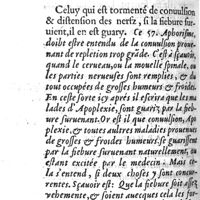 Celuy qui est tormenté de conuulsion
& distension des nerfz, si la fiebure sur-
uient, il en est guary. Ce 57. Aphorisme,
doibt estre entendu de la conuulsion proue-
nant de repletion trop grāde. C'est à sçauoir,
quand le cerueau, ou la mouelle spinale, ou
les parties nerueuses sont remplies, & du
tout occupées de grosses humeurs & froides.
En ceste sorte icy apres il escrira que les ma-
lades d'Apoplexie, sont guariz par la fieb-
ure suruenant. Or est il que conuulsion, Apo-
plexie, & toutes autres maladies prouenues
de grosses & froides humeurs se guarissent
par la fiebure suruenant naturellement, ou
estant excitée par le medecin. Mais ce-
la s'entend, si deux choses y sont concur-
rentes. Sçauoir est: Que la fiebure soit assez
vehemente, & soient auecques cela les